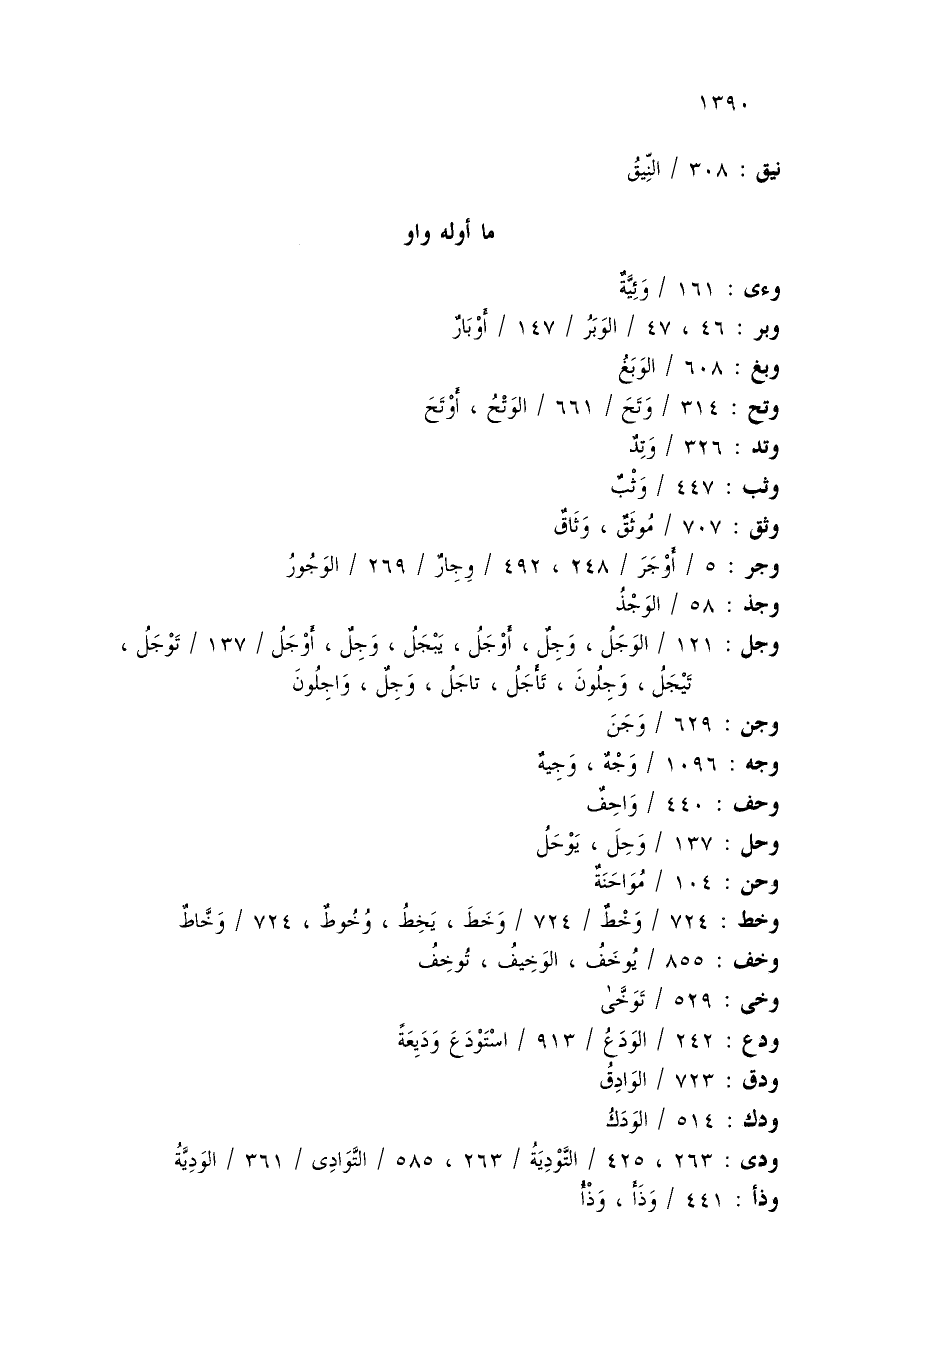 ١٣٩٠
نيق : ٣٠٨ / النِّيقُ
ما أوله واو
وءى : ١٦١ / وَئِيَّةٌ
وبر : ٤٦ ، ٤٧ / الوَبَرُ / ١٤٧ / أَوْبَارٌ
وبغ : ٦٠٨ / الوَبَغُ
وتح : ٣١٤ / وَتَحَ / ٦٦١ / الوَتْحُ ، أَوْتَحَ
وتد : ٣٢٦ / وَتِدٌ
وثب : ٤٤٧ / وَثْبٌ
وثق : ٧٠٧ / مُوثَقٌ ، وَثَاقٌ
وجر : ٥ / أَوْجَرَ / ٢٤٨ ، ٤٩٢ / وِجارٌ / ٢٦٩ / الوَجُورُ
وجذ : ٥٨ / الوَجْذُ
وجل : ١٢١ / الوَجَلُ ، وَجِلٌ ، أَوْجَلُ ، يَيْجَلُ ، وَجِلٌ ، أَوْجَلُ / ١٣٧ / تَوْجَلُ ،
تَيْجَلُ ، وَجِلُونَ ، تَأْجَلُ ، تاجَلُ ، وَجِلٌ ، وَاجِلُونَ
وجن : ٦٢٩ / وَجَنَ
وجه : ١٠٩٦ / وَجْهٌ ، وَجِيهٌ
وحف : ٤٤٠ / وَاحِفٌ
وحل : ١٣٧ / وَحِلَ ، يَوْحَلُ
وحن : ١٠٤ / مُوَاحَنَةٌ
وخط : ٧٢٤ / وَخْطٌ / ٧٢٤ / وَخَطَ ، يَخِطُ ، وُخُوطٌ ، ٧٢٤ / وَخَّاطٌ
وخف : ٨٥٥ / يُوخَفُ ، الوَخِيفُ ، تُوخِفُ
وخى : ٥٢٩ / تَوَخَّىٰ
ودع : ٢٤٢ / الوَدَعُ / ٩١٣ / اسْتَوْدَعَ وَدَيِعَةً
ودق : ٧٢٣ / الوَادِقُ
ودك : ٥١٤ / الوَدَكُ
ودى : ٢٦٣ ، ٤٢٥ / التَّوْدِيَةُ / ٢٦٣ ، ٥٨٥ / التَّوَادِى / ٣٦١ / الوَدِيَّةُ
وذأ : ٤٤١ / وَذَأَ ، وَذْأُ